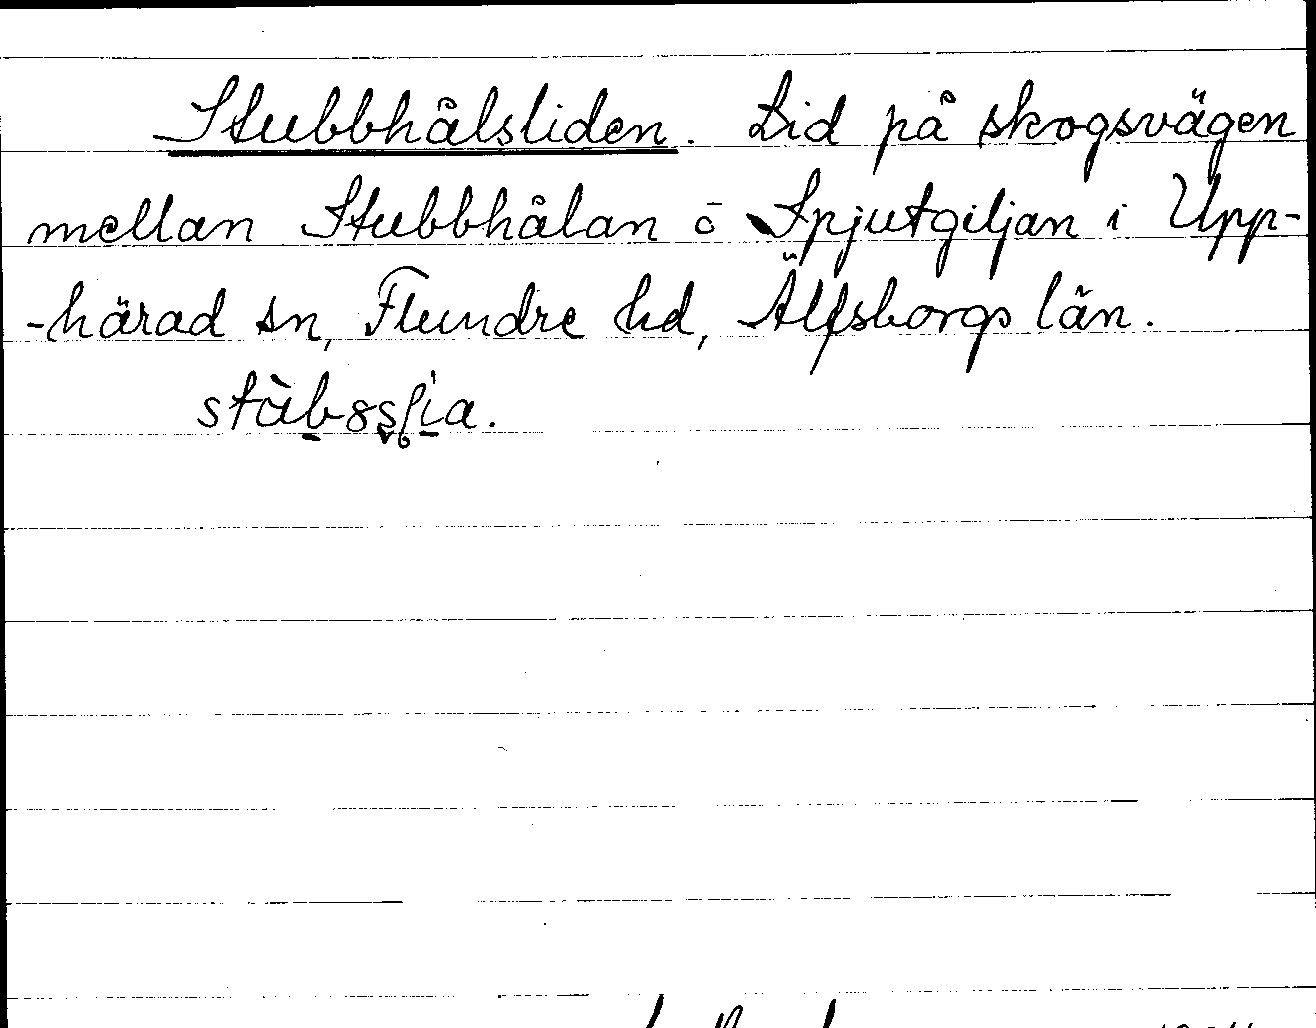 Stubbhålsliden. Lid på skogsvägen
mellan Stubbhålan ō Spjutgiljan i Upp-
-härad sn, Flundre hd, Älfsborgs län.